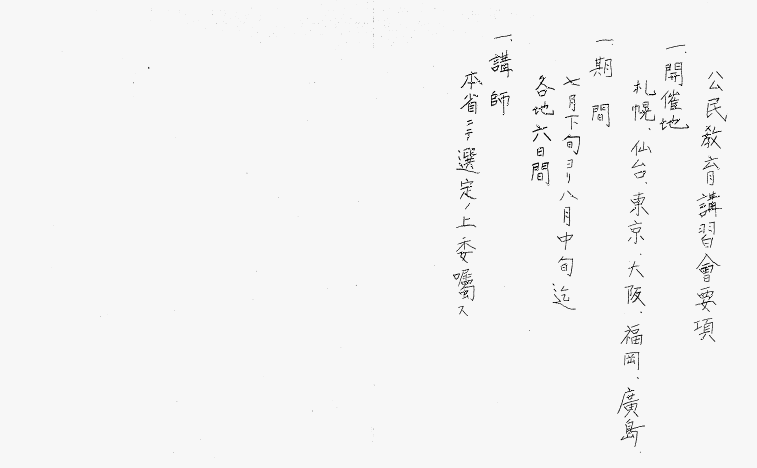 公民教育講習會要項
一、開催地
札幌、仙台、東京、大阪、福岡、廣島、
一、期間
七月下旬ヨリ八月中旬迄
各地六日間
一、講師
本省ニテ選定ノ上委嘱ス